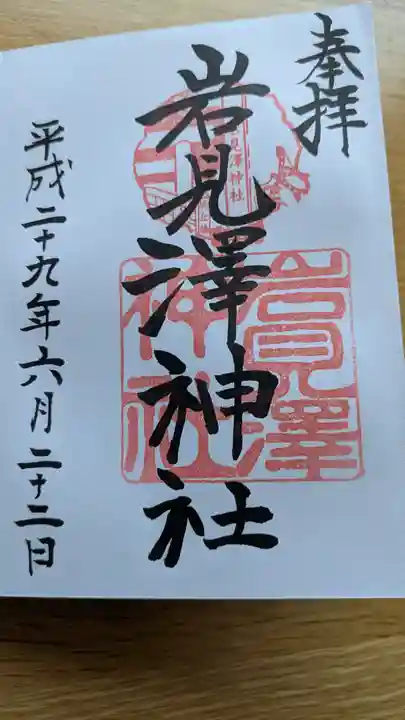 奉拝
岩見澤神社
見澤神社
岩見澤
神社
平成二十九年六月二十二日